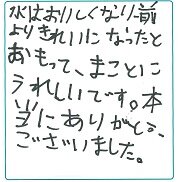 水はおいしくなり前
よりきれいになったと
おもって、まことに
うれしいです。本
当にありがとう
ございました。